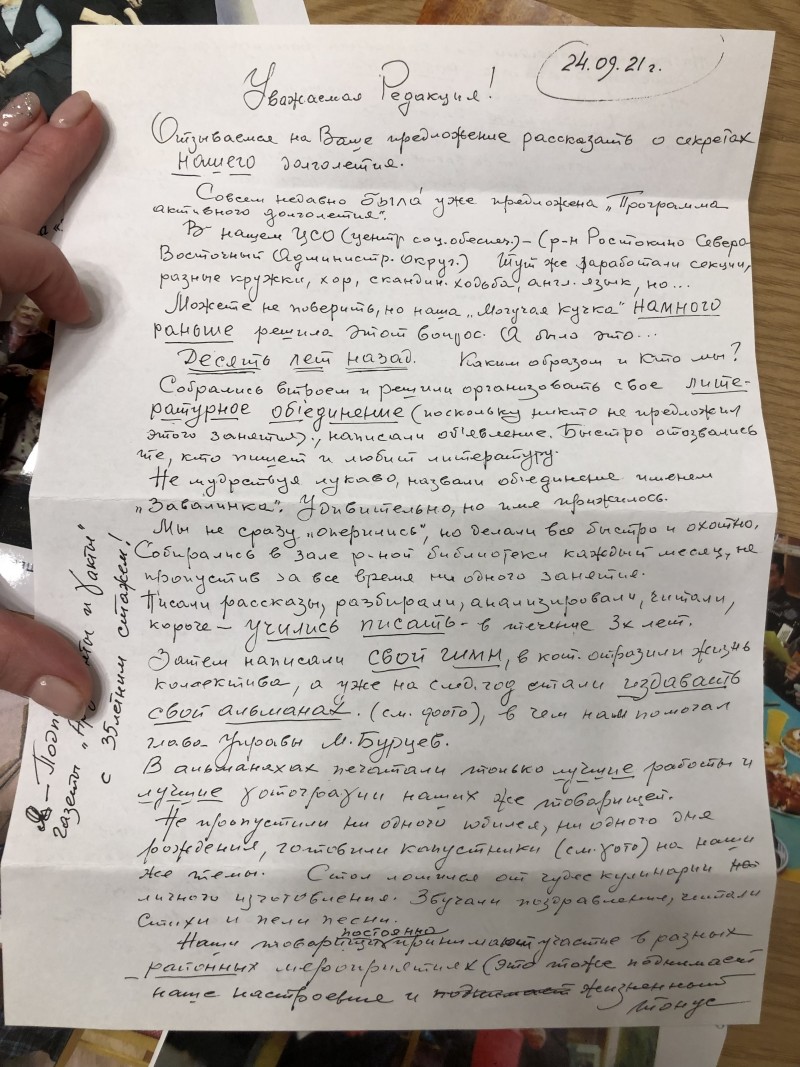 24.09.21 г.
Уважаемая Редакция!
Отзываемся на Ваше предложение рассказать о секретах
нашего долголетия.
Совсем недавно была уже предложена „Программа
активного долголетия".
В нашем ЦСО (центр соц. обеспеч.) – (р-н Ростокино Северо
Восточный Администр. округ.) Тут же заработали секции,
разные кружки, хор, скандин. ходьба, англ. язык, но...
Можете не поверить, но наша „Могучая кучка" намного
раньше решила этот вопрос. А было это...
Десять лет назад. Каким образом и кто мы?
Собрались втроем и решили организовать свое лите-
ратурное об'единение (поскольку никто не предложил
этого занятия)., написали об'явление. Быстро отозвались
те, кто пишет и любит литературу.
Не мудрствуя лукаво, назвали объединение именем
„Завалинка". Удивительно, но имя прижилось.
Мы не сразу „оперились", но делали все быстро и охотно.
Собирались в зале р-ной библиотеки каждый месяц, не
пропустив за все время ни одного занятия.
Писали рассказы, разбирали, анализировали, читали,
короче – учились писать – в течение 3х лет.
Затем написали свой гимн, в кот. отразили жизнь
коллектива, а уже на след. год стали издавать
свой альманах. (см. фото), в чем нам помогал
глава Управы М. Бурцев.
В альманахах печатали только лучшие работы и
лучшие фотографии наших же товарищей.
Не пропустили ни одного юбилея, ни одного дня
рождения, готовили капустники (см. фото) на наши
же темы. Стол ломился от чудес кулинарии
личного изготовления. Звучали поздравления, читали
стихи и пели песни.
Наши товарищи постоянно принимают участие в разных
районных мероприятиях (это тоже поднимает
наше настроение и поднимает жизненный
тонус
газеты „ты и факты"
с 35летним стажем!